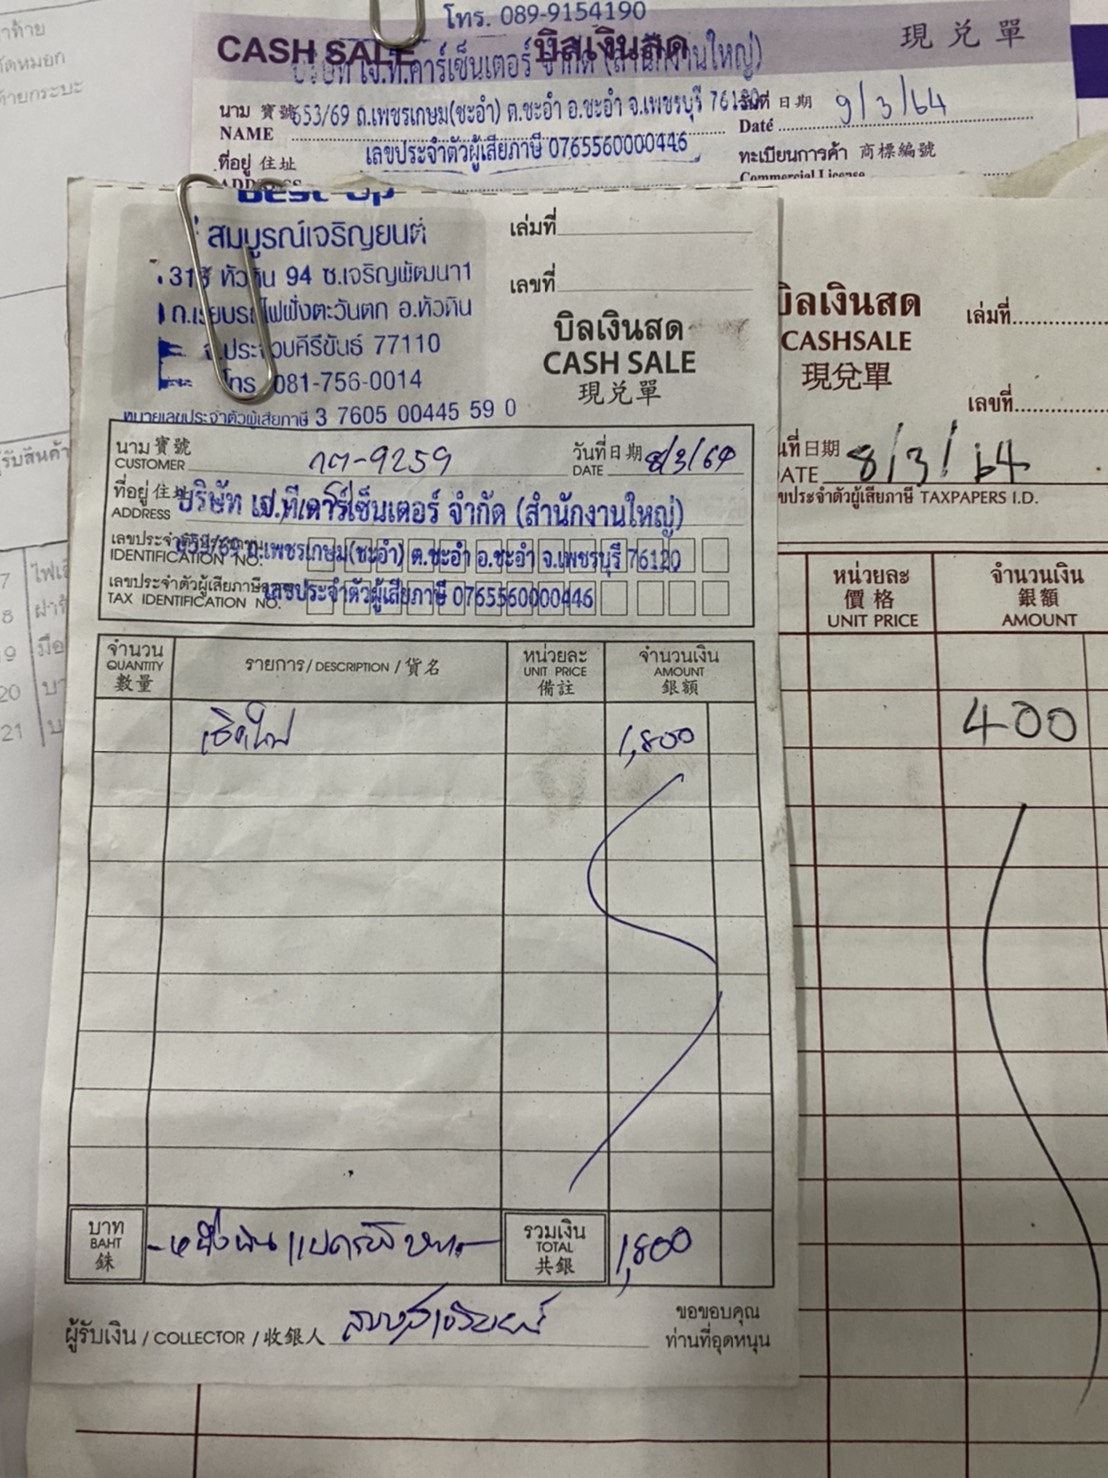 โทร. 089-9154190
CASH SALE บิลเงินสด 現兌單
บริษัท เจ.ที.คาร์เซ็นเตอร์ จำกัด (สำนักงานใหญ่)
นาม 寶號 653/69 ถ.เพชรเกษม(ชะอำ) ต.ชะอำ อ.ชะอำ จ.เพชรบุรี 76120 วันที่ 日期 9/3/64
NAME Date
ที่อยู่ 住址 เลขประจำตัวผู้เสียภาษี 0765560000446 ทะเบียนการค้า 商標編號
ADDRESS Commercial License
Best Up
สมบูรณ์เจริญยนต์ เล่มที่
หัวหิน 94 ซ.เจริญพัฒนา1 เลขที่
ถ.เรียบรถไฟฝั่งตะวันตก อ.หัวหิน
จ.ประจวบคีรีขันธ์ 77110
โทร. 081-756-0014
หมายเลขประจำตัวผู้เสียภาษี 3 7605 00445 59 0
บิลเงินสด
CASH SALE
現兌單
นาม 寶號
CUSTOMER กต-9259 วันที่ 日期 DATE 8/3/64
ที่อยู่ 住址
ADDRESS บริษัท เจ.ที.คาร์เซ็นเตอร์ จำกัด (สำนักงานใหญ่)
IDENTIFICATION NO. 653/69 ถ.เพชรเกษม(ชะอำ) ต.ชะอำ อ.ชะอำ จ.เพชรบุรี 76120
เลขประจำตัวผู้เสียภาษี
TAX IDENTIFICATION NO. เลขประจำตัวผู้เสียภาษี 0765560000446
จำนวน รายการ / DESCRIPTION / 貨名 หน่วยละ จำนวนเงิน
QUANTITY UNIT PRICE AMOUNT
數量 備註 銀額
1,800
บาท BAHT 銖 หนึ่งพันแปดร้อยบาท รวมเงิน TOTAL 共銀 1,800
ผู้รับเงิน / COLLECTOR / 收銀人 สมบูรณ์เจริญยนต์
ขอขอบคุณ
ท่านที่อุดหนุน
บิลเงินสด เล่มที่
CASHSALE
現兌單 เลขที่
วันที่ 日期
DATE 8/3/64
เลขประจำตัวผู้เสียภาษี TAXPAPERS I.D.
หน่วยละ จำนวนเงิน
價格 銀額
UNIT PRICE AMOUNT
400
รับสินค้า
7
8
9
20
21